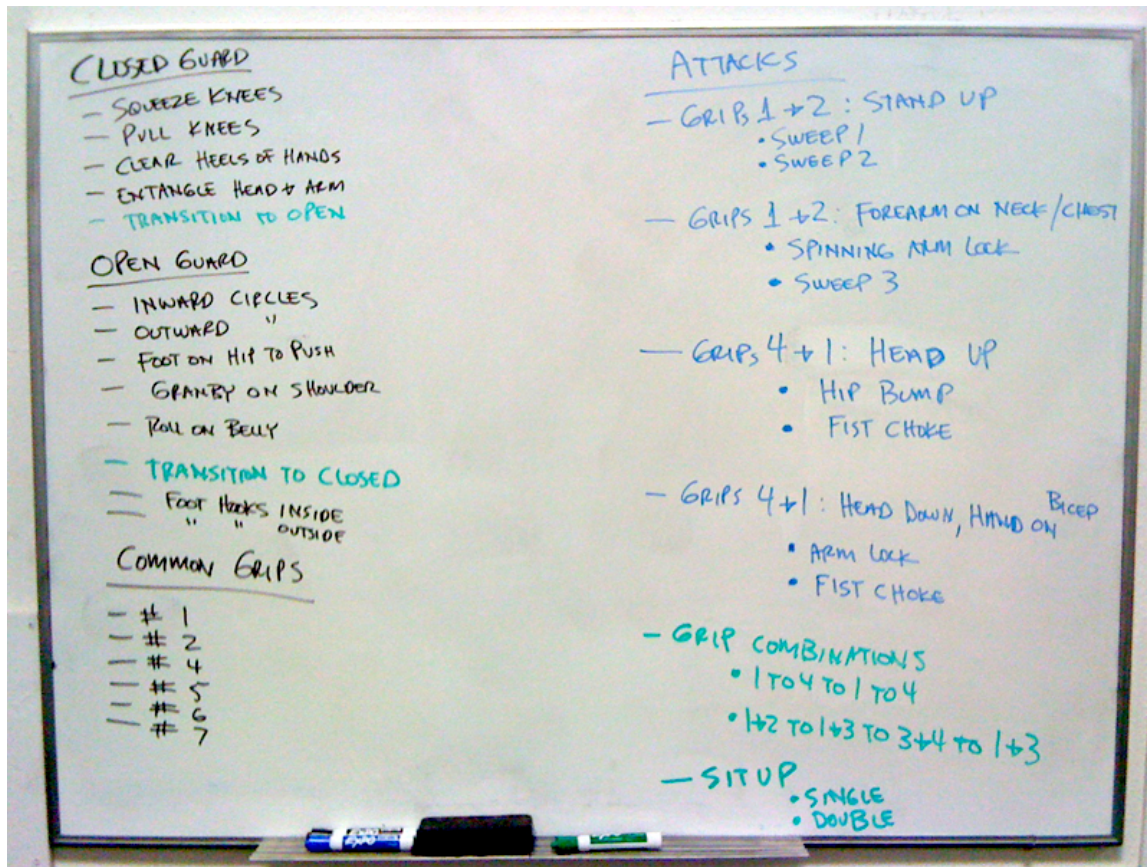 CLOSED GUARD
- SQUEEZE KNEES
- PULL KNEES
- CLEAR HEELS OF HANDS
- ENTANGLE HEAD + ARM
- TRANSITION TO OPEN
OPEN GUARD
- INWARD CIRCLES
- OUTWARD "
- FOOT ON HIP TO PUSH
- GRANBY ON SHOULDER
- ROLL ON BELLY
- TRANSITION TO CLOSED
- FOOT HOOKS INSIDE
- " " OUTSIDE
COMMON GRIPS
- # 1
- # 2
- # 4
- # 5
- # 6
- # 7
ATTACKS
- GRIPS 1 + 2 : STAND UP
• SWEEP 1
• SWEEP 2
- GRIPS 1 + 2 : FOREARM ON NECK/CHEST
• SPINNING ARM LOCK
• SWEEP 3
- GRIPS 4 + 1 : HEAD UP
• HIP BUMP
• FIST CHOKE
- GRIPS 4 + 1 : HEAD DOWN, HAND ON BICEP
• ARM LOCK
• FIST CHOKE
- GRIP COMBINATIONS
• 1 TO 4 TO 1 TO 4
• 1+2 TO 1+3 TO 3+4 TO 1+3
- SIT UP
• SINGLE
• DOUBLE